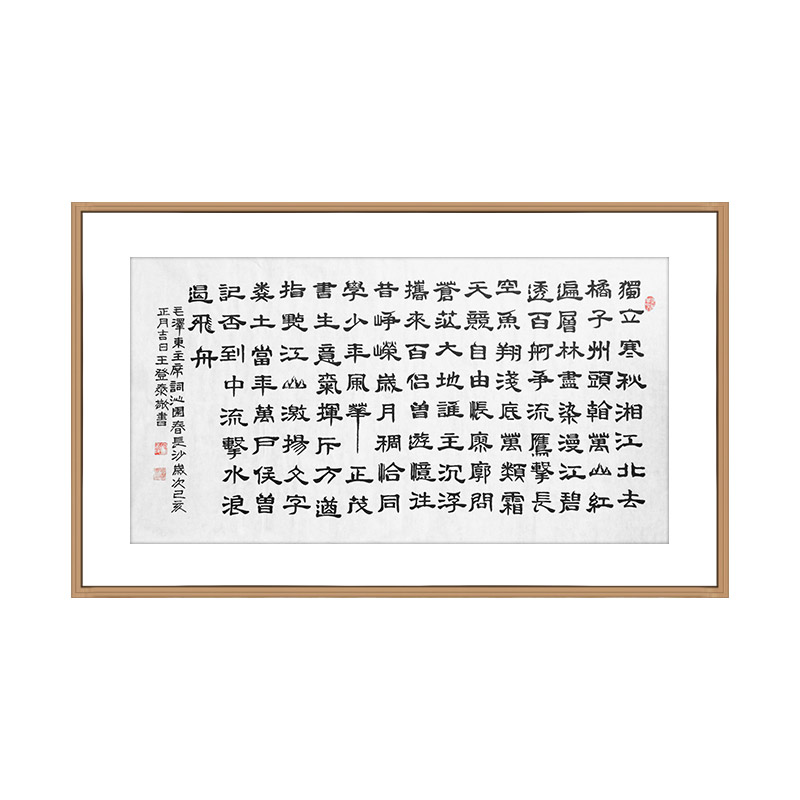 獨立寒秋湘江北去
橘子州頭看萬山紅
遍層林盡染漫江碧
透百舸爭流鷹擊長
空魚翔淺底萬類霜
天競自由悵廖廓問
蒼茫大地誰主沉浮
攜來百侶曾遊憶往
昔崢嶸歲月稠恰同
學少年風華正茂
書生意氣揮斥方遒
指點江山激揚文字
糞土當年萬戶侯曾
記否到中流擊水浪
遏飛舟
毛澤東主席詞沁園春長沙歲次己亥
正月吉日王登泰敬書